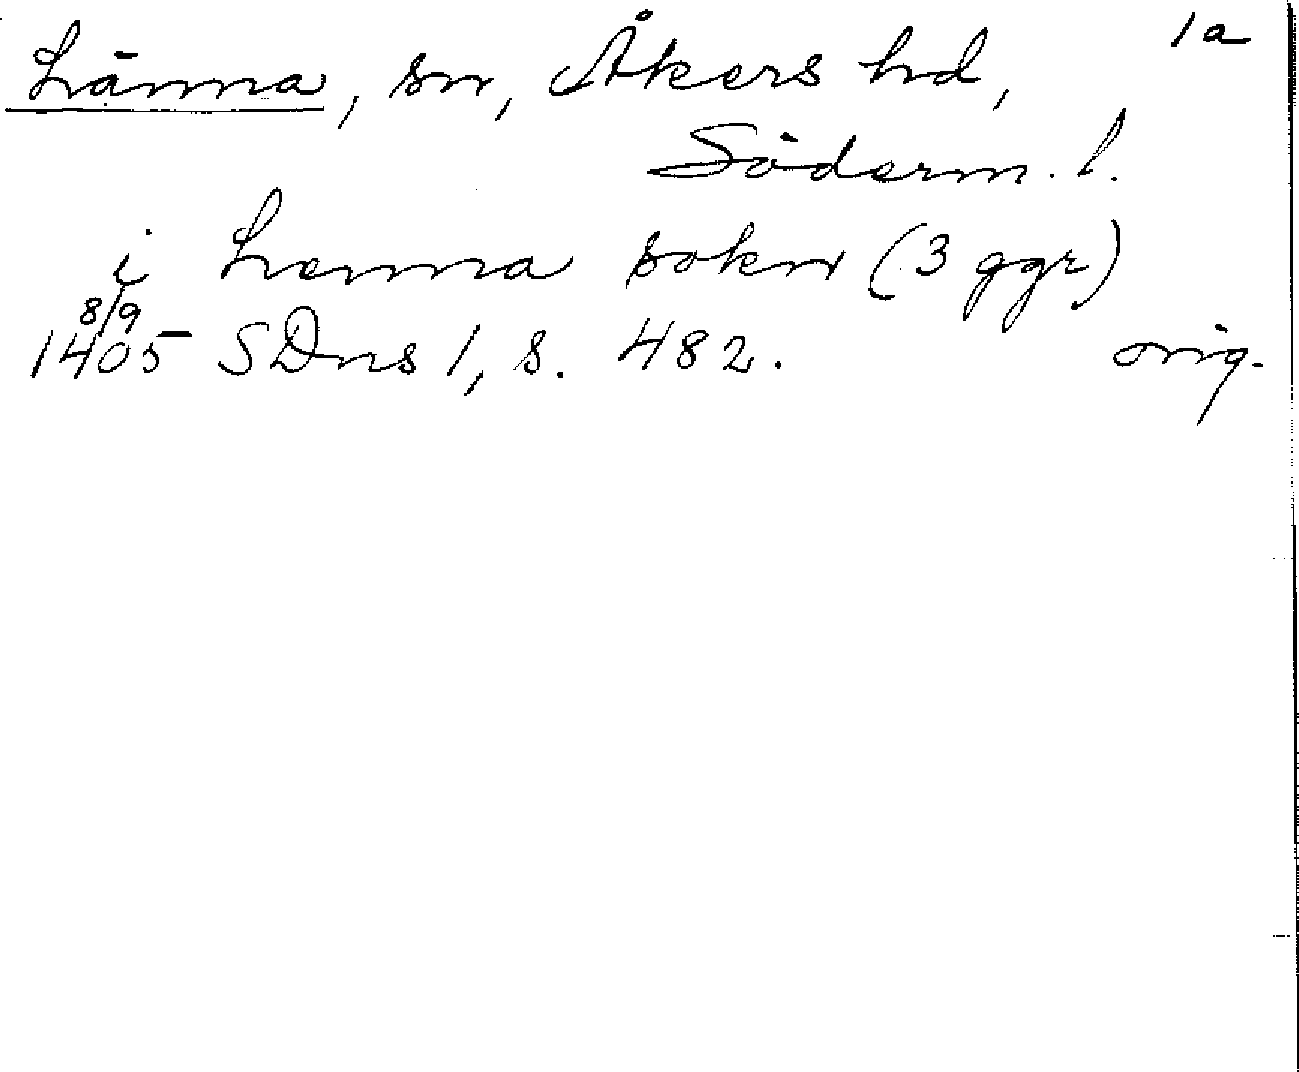 1a
Länna, sn, Åkers hd,
Söderm. l.
i Lenna sokn (3 ggr)
8/9
1405 SDns 1, s. 482. orig.